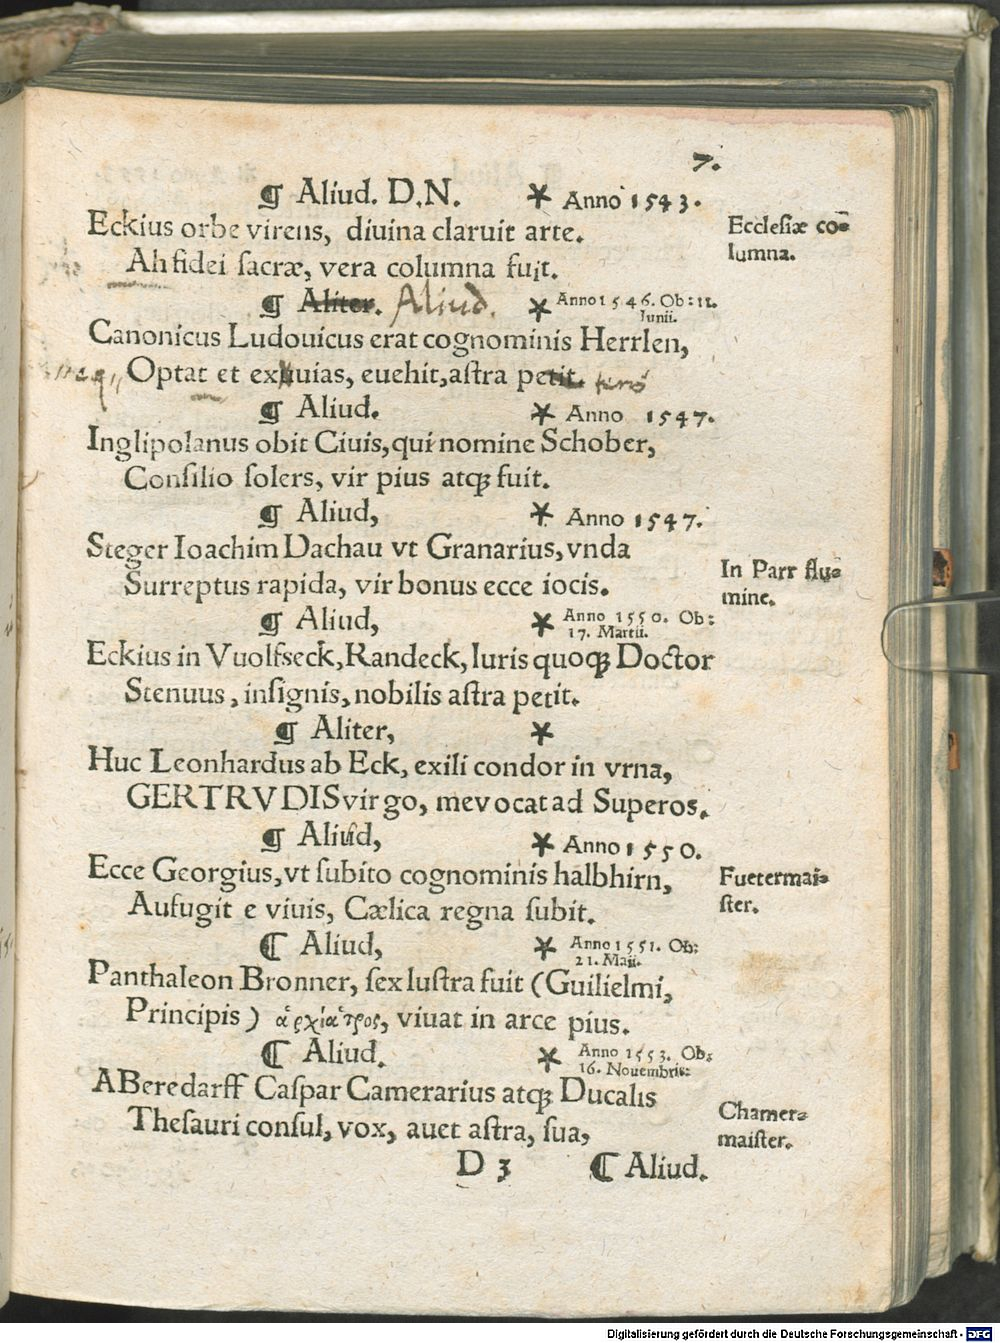 7.
¶ Aliud. D.N. * Anno 1543.
Eckius orbe virens, diuina claruit arte.
Ecclesiæ co=
lumna.
Ah fidei sacræ, vera columna fuit.
¶ Aliter. Aliud. * Anno 1546. Ob: 11.
Iunii.
Canonicus Ludouicus erat cognominis Herrlen,
Optat et exuuias, euehit, astra petit.
¶ Aliud. * Anno 1547.
Inglipolanus obit Ciuis, qui nomine Schober,
Consilio solers, vir pius atqꝫ fuit.
¶ Aliud, * Anno 1547.
Steger Ioachim Dachau vt Granarius, vnda
In Parr flu=
mine.
Surreptus rapida, vir bonus ecce iocis.
¶ Aliud, * Anno 1550. Ob:
17. Martii.
Eckius in Vuolfseck, Randeck, Iuris quoqꝫ Doctor
Stenuus, insignis, nobilis astra petit.
¶ Aliter, *
Huc Leonhardus ab Eck, exili condor in vrna,
GERTRVDIS virgo, me vocat ad Superos.
¶ Aliud, * Anno 1550.
Ecce Georgius, vt subito cognominis halbhirn,
Fuetermai=
ster.
Aufugit e viuis, Cælica regna subit.
¶ Aliud, * Anno 1551. Ob:
21. Maii.
Panthaleon Bronner, sex lustra fuit (Guilielmi,
Principis) ἀρχίατρος, viuat in arce pius.
¶ Aliud. * Anno 1553. Ob:
16. Nouembris:
ABeredarff Caspar Camerarius atqꝫ Ducalis
Chamer=
maister.
Thesauri consul, vox, auet astra, sua,
D 3 ¶ Aliud.
Digitalisierung gefördert durch die Deutsche Forschungsgemeinschaft - DFG